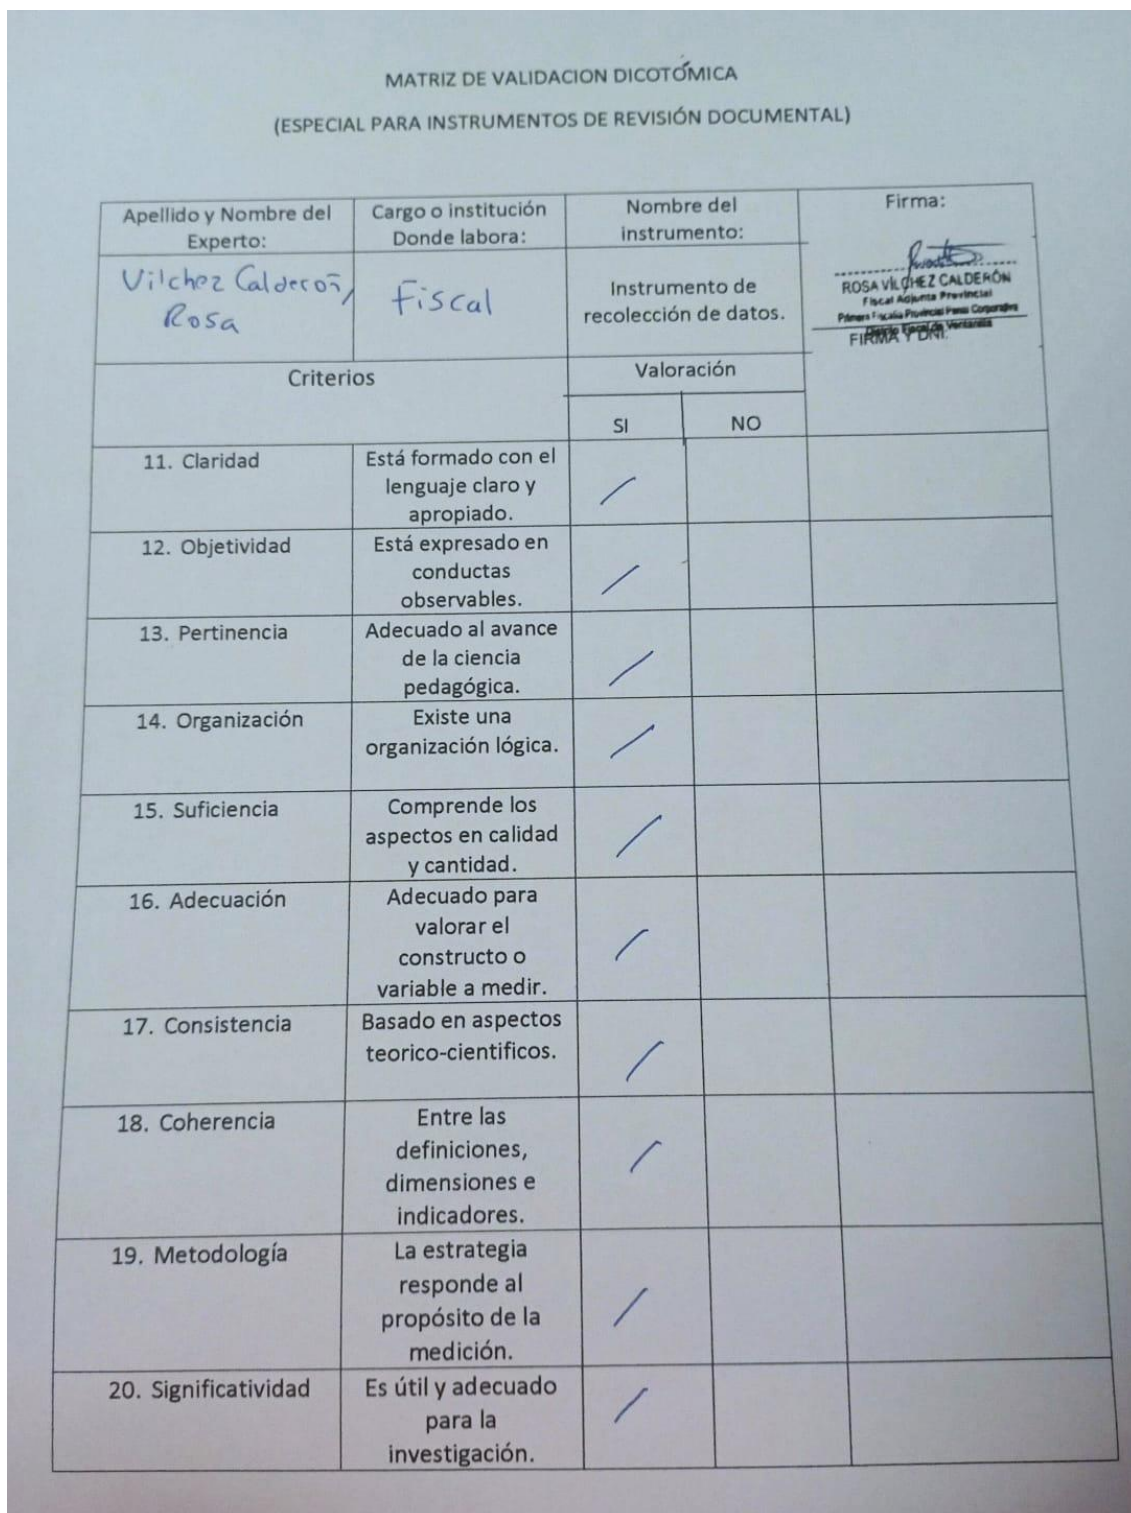 MATRIZ DE VALIDACION DICOTÓMICA
(ESPECIAL PARA INSTRUMENTOS DE REVISIÓN DOCUMENTAL)
Apellido y Nombre del
Experto:
Cargo o institución
Donde labora:
Nombre del
instrumento:
Firma:
Vilchez Calderón,
Rosa
Fiscal
Instrumento de
recolección de datos.
ROSA VÍLCHEZ CALDERÓN
Fiscal Adjunta Provincial
Primera Fiscalía Provincial Penal Corporativa
Distrito Fiscal de Ventanilla
FIRMA Y DNI.
Criterios
Valoración
SI
NO
11. Claridad
Está formado con el
lenguaje claro y
apropiado.
12. Objetividad
Está expresado en
conductas
observables.
13. Pertinencia
Adecuado al avance
de la ciencia
pedagógica.
14. Organización
Existe una
organización lógica.
15. Suficiencia
Comprende los
aspectos en calidad
y cantidad.
16. Adecuación
Adecuado para
valorar el
constructo o
variable a medir.
17. Consistencia
Basado en aspectos
teorico-cientificos.
18. Coherencia
Entre las
definiciones,
dimensiones e
indicadores.
19. Metodología
La estrategia
responde al
propósito de la
medición.
20. Significatividad
Es útil y adecuado
para la
investigación.